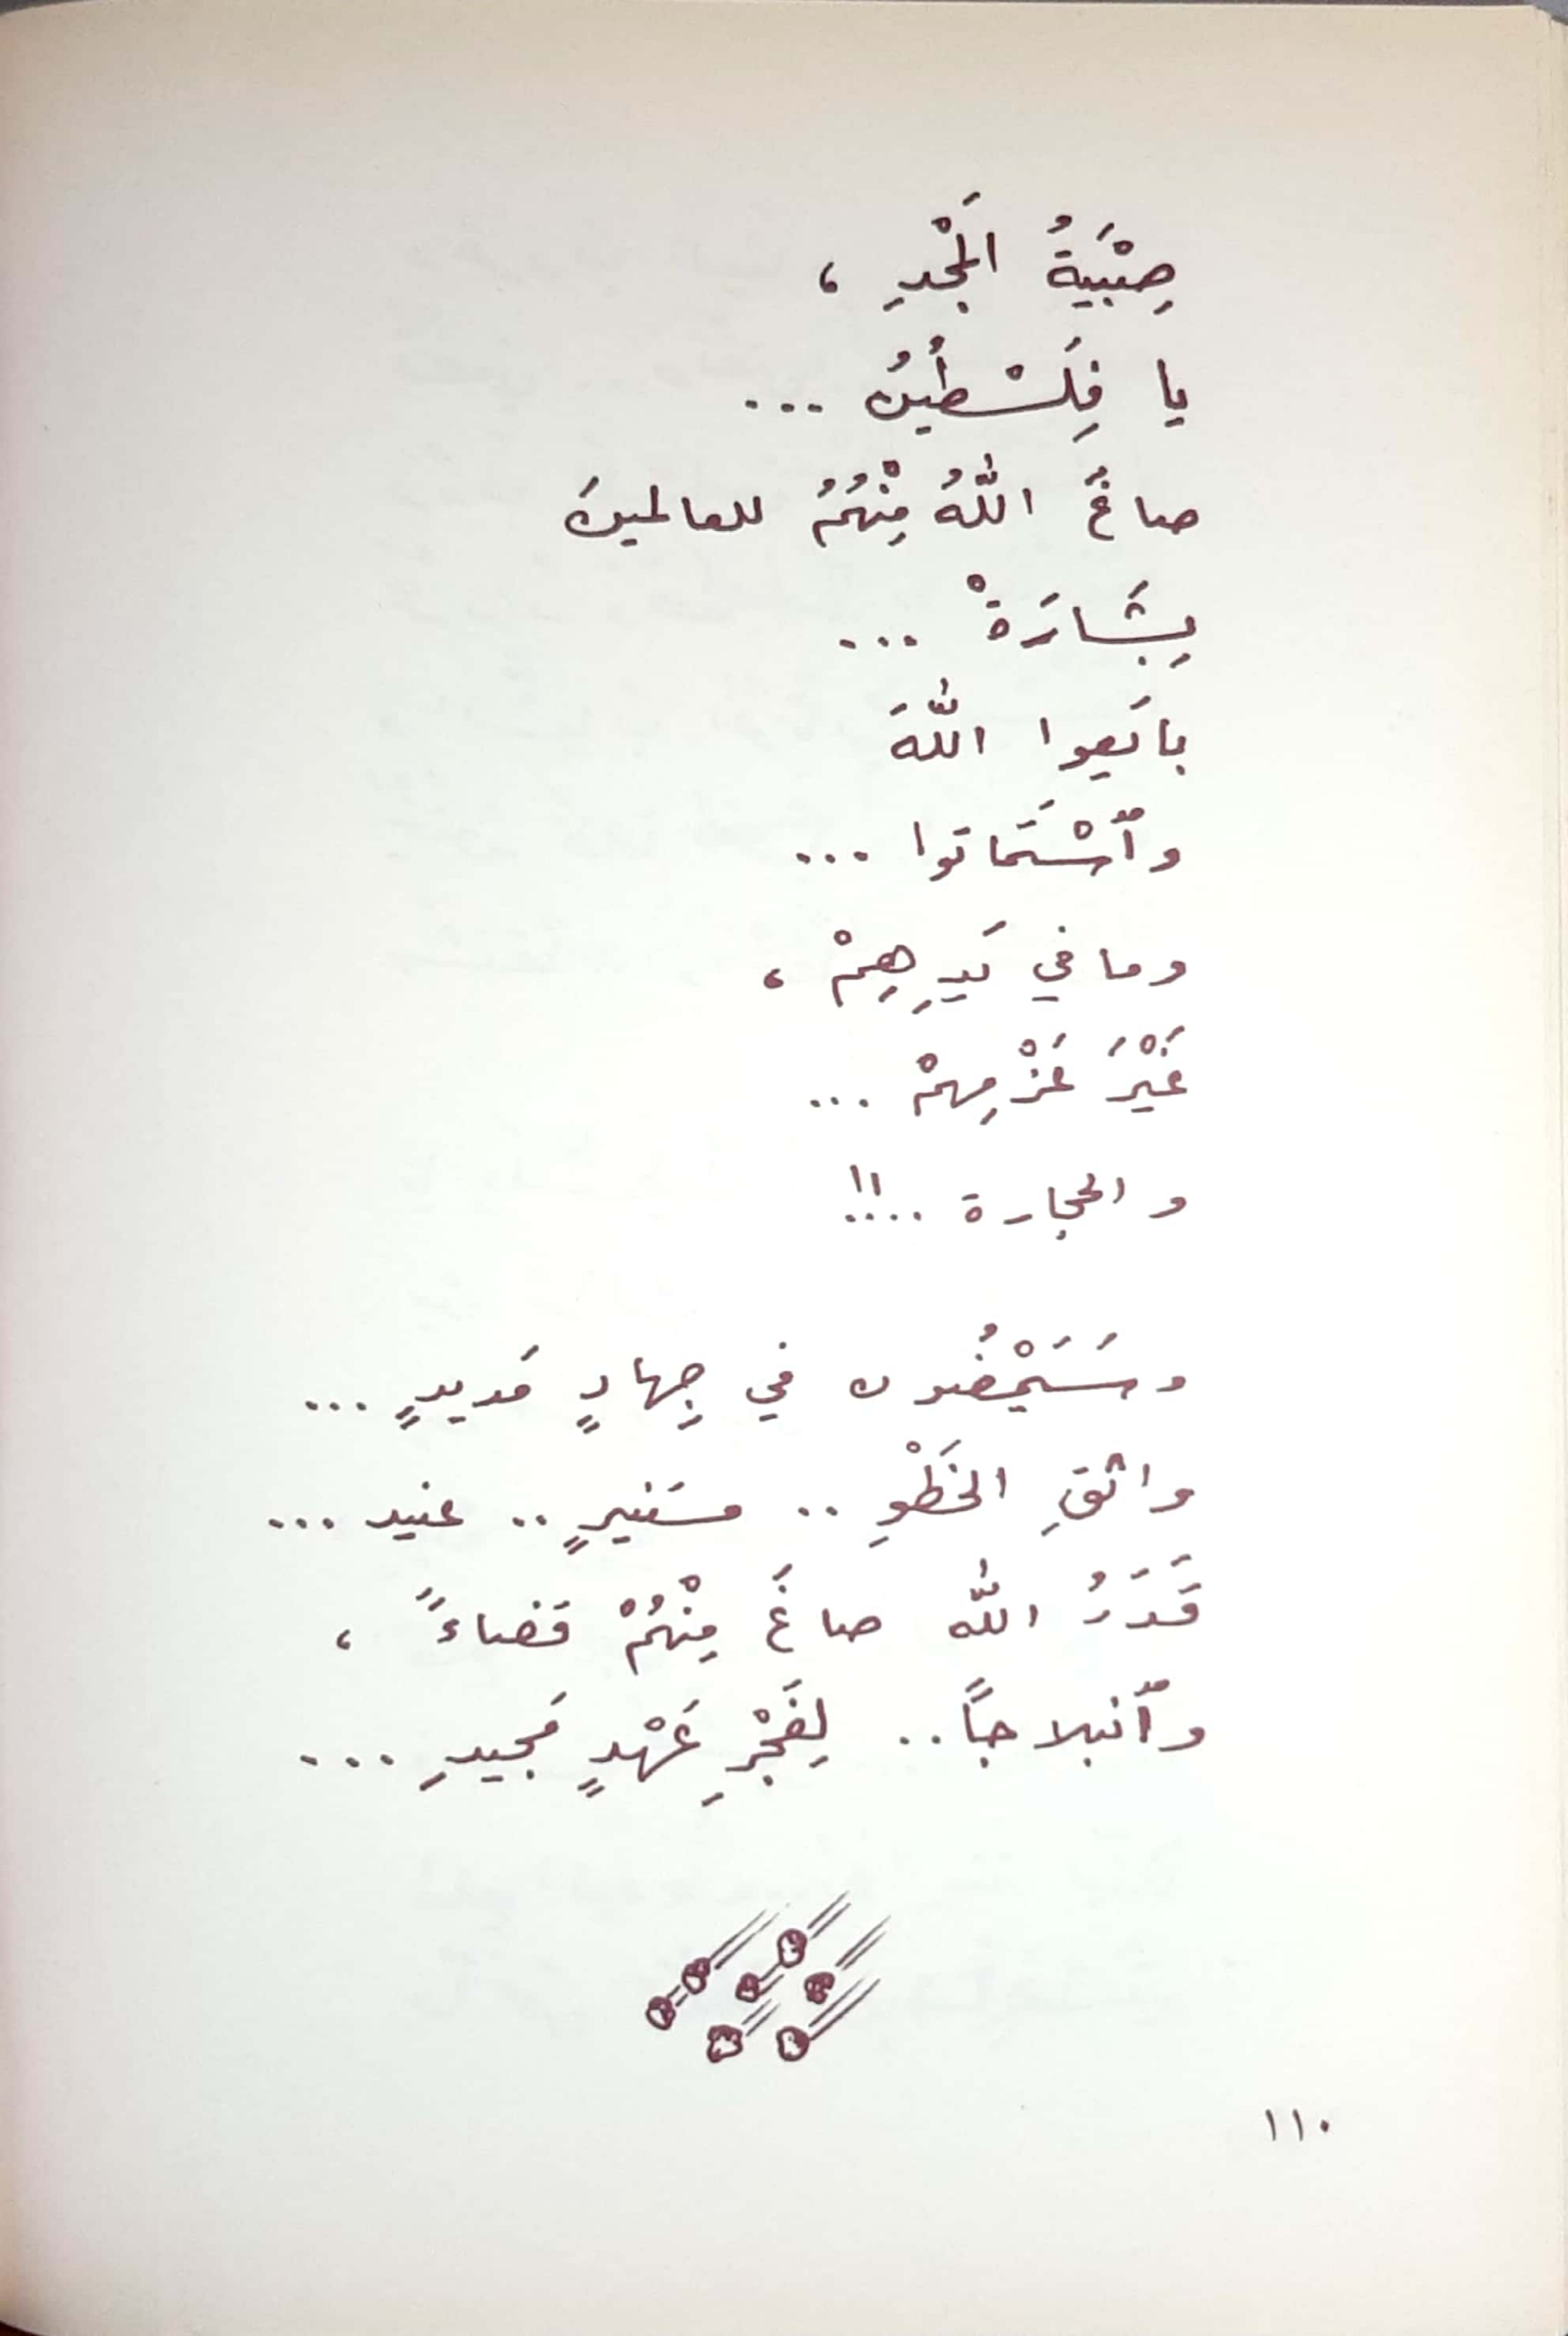 صِبْيَةُ الَمجْدِ ،
يا فِلَسْطينُ ...
صاغَ اللّٰهُ مِنْهُمُ للعالمينَ
بِشَارَةْ ...
بايَعوا اللّٰهَ
وٱسْتَماتوا ...
وما في يَدِهِمْ ،
غَيْرَ عَزْمِهمْ ...
و الحجارة ..!!
وسَيَمْضُون في جِهادٍ مَديدٍ ...
واثقِ الخَطْوِ .. مسَنيرٍ .. عنيد ...
قَدَرُ اللّٰه صاغَ مِنْهُمْ قضاءً ،
وٱنبلاجاً .. لِفَجْرِ عَهْدٍ مَجيدِ ...
١١٠